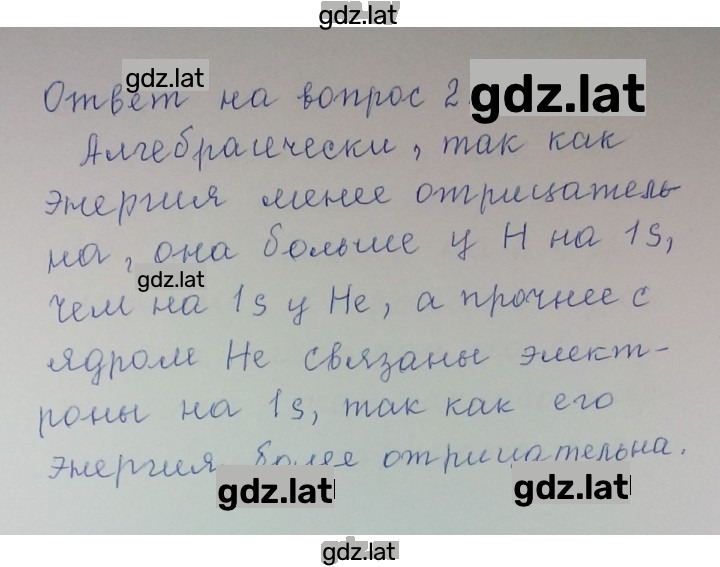 gdz.lat
gdz.lat
Ответ на вопрос 2. gdz.lat
Алгебраически, так как
энергия менее отрицатель-
на, она больше у H на 1s,
gdz.lat
чем на 1s у He, а прочнее с
ядром He связаны элект-
роны на 1s, так как его
энергия более отрицательна.
gdz.lat
gdz.lat
gdz.lat